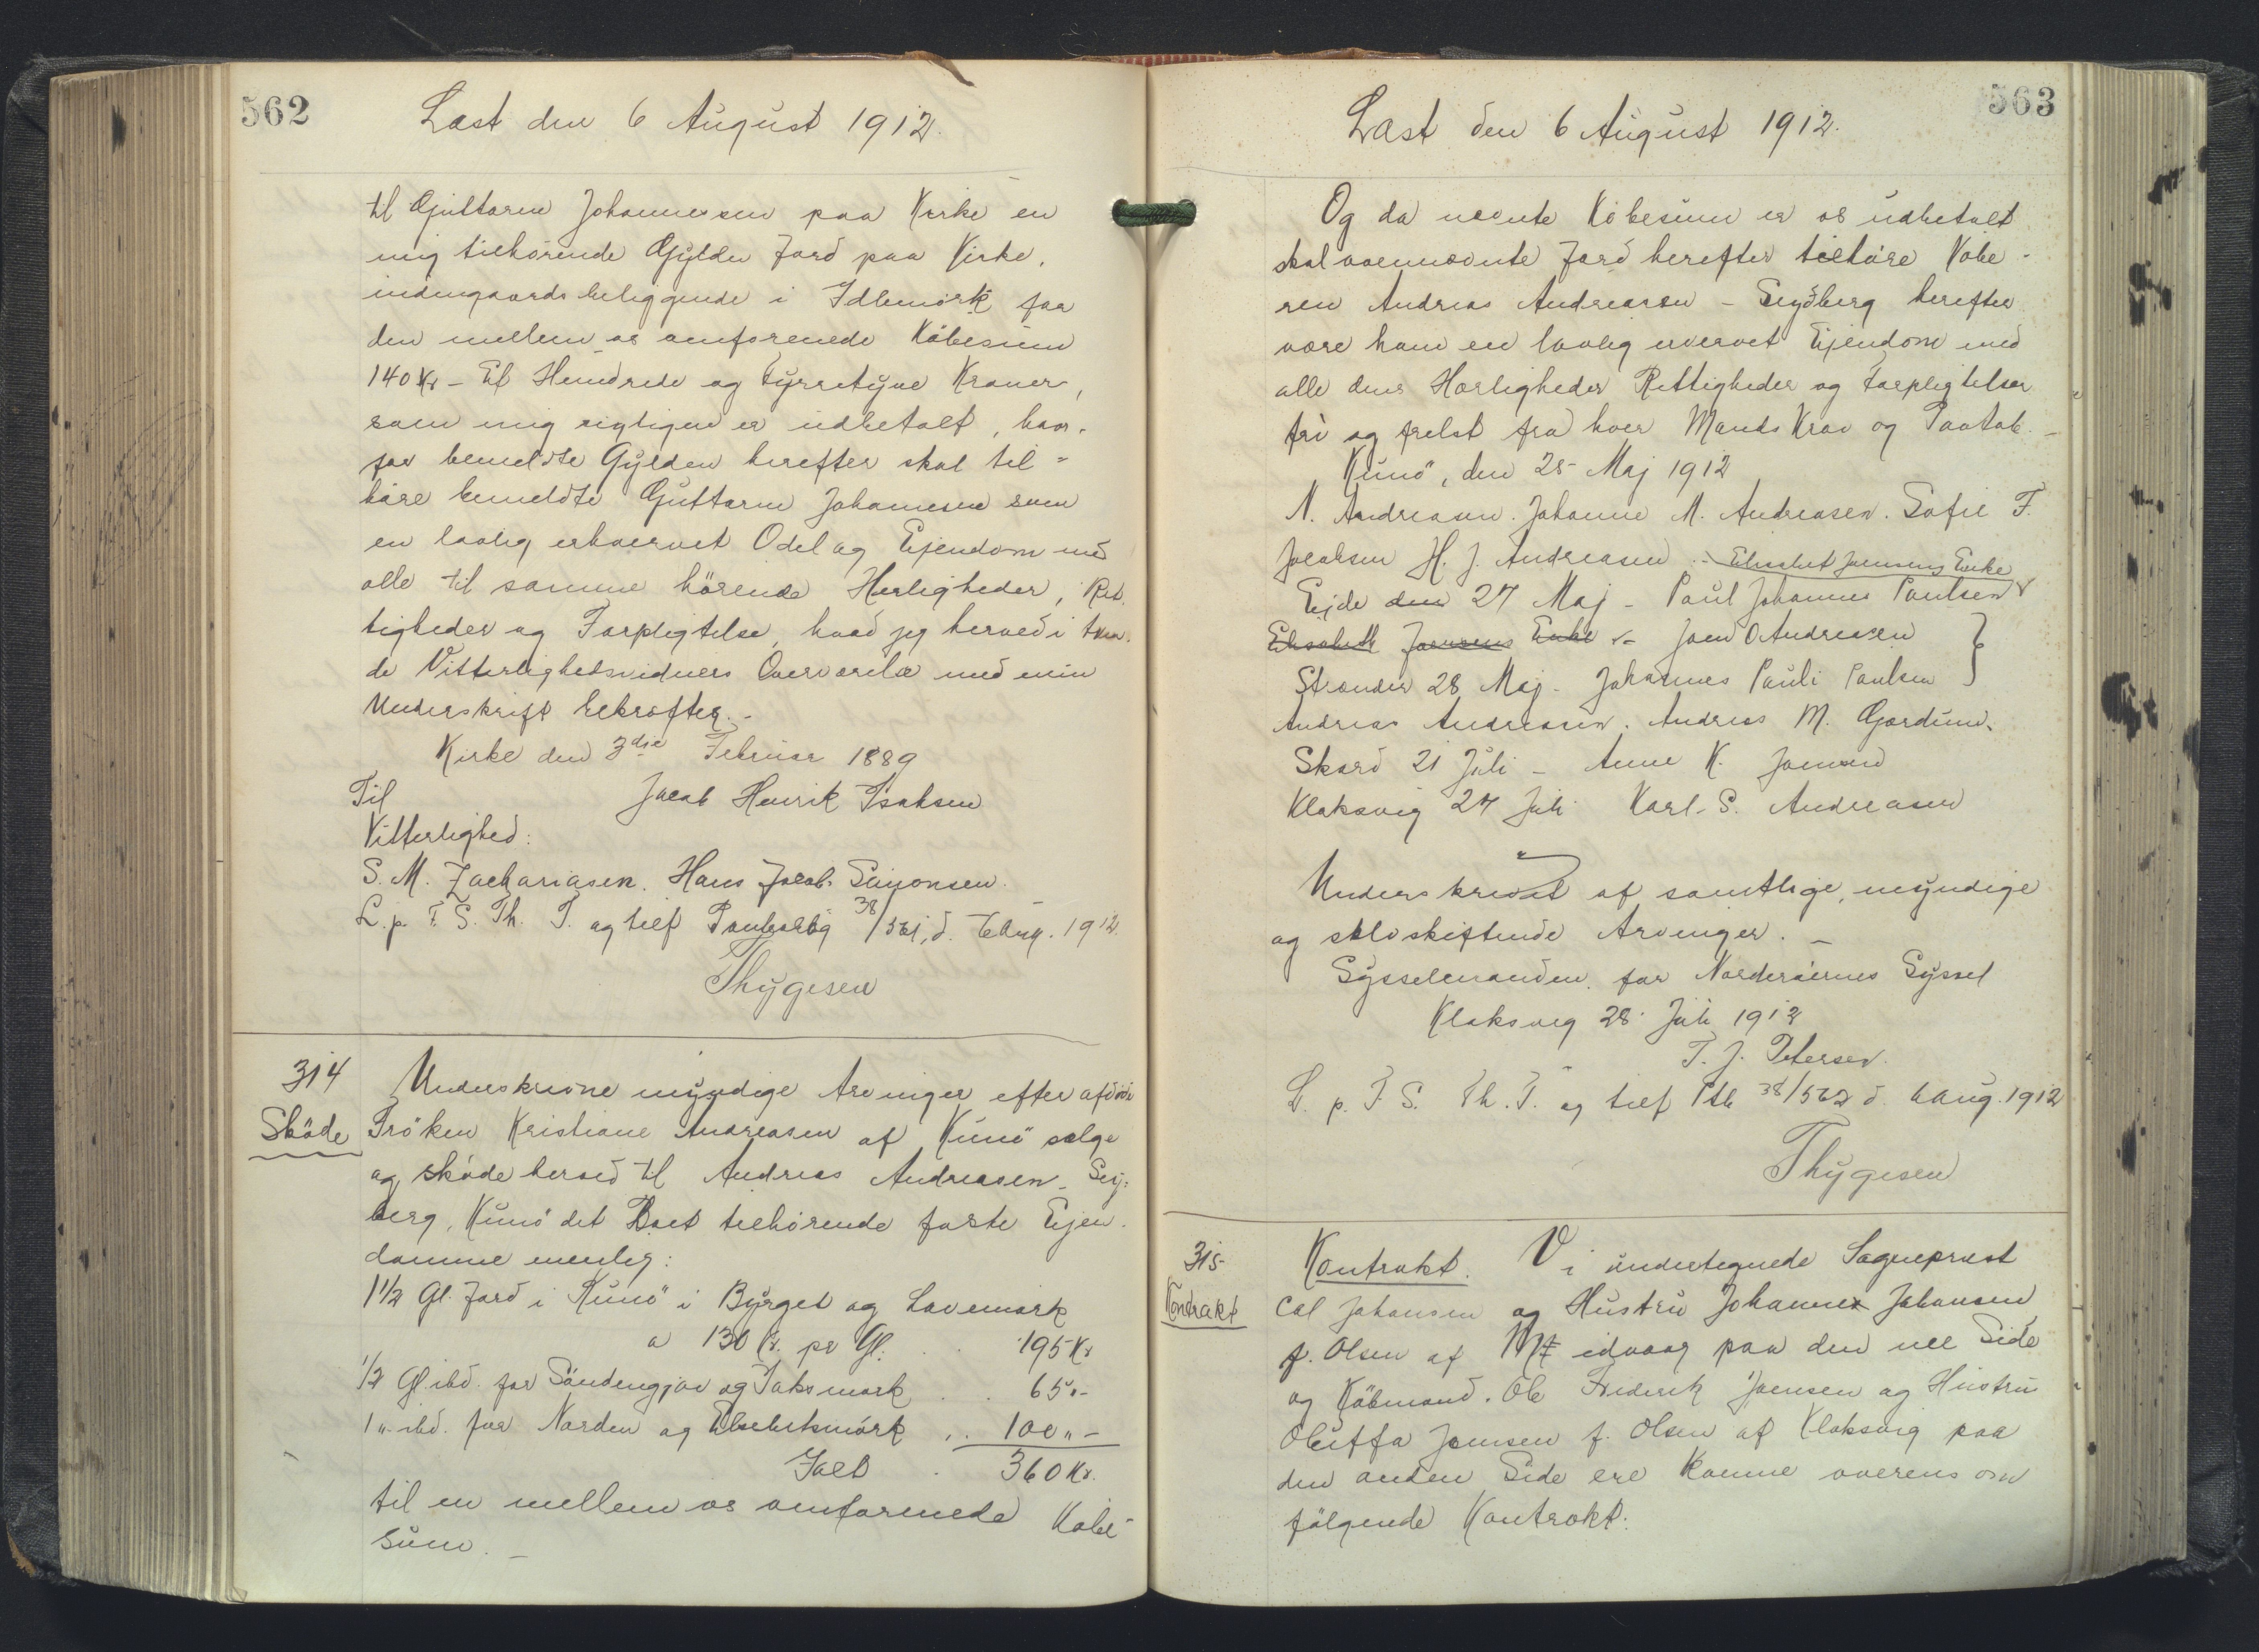 562
Læst den 6 August 1912.
til Guttorm Johannesen paa Kirke en
mig tilhörende Gylden Jord paa Kirke,
indengaards beliggende i Idlemörk for
den mellem os omforenede Köbesum
140 Kr - Et Hundrede og fyrretyve Kroner,
som mig rigtigen er udbetalt, hvor-
for bemeldte Gylden herefter skal til-
höre bemeldte Guttorm Johannesen som
en lovlig erhvervet Odel og Ejendom med
alle til samme hörende Herligheder, Ret-
tigheder og Forpligtelse, hvad jeg herved i tven-
de Vitterlighedsvidners Overværelse med min
Underskrift bekræfter.-
Kirke den 3die Februar 1889
Til Jacob Henrik Isaksen
Vitterlighed:
S. M. Zachariasen. Hans Jacob Simonsen.
L. p. F. S. Th. T. og tilf Panteselbog 38/561, d. 6 Aug. 1912.
Thygesen
314 Underskrivne myndige Arvinger efter afdöde
Sköde Fröken Kristiane Andreasen af Kunö sælge
og sköde herved til Andreas Andreasen - Sey-
berg, Kunö det Boet tilhörende faste Ejen-
domme nemlig:
1 1/2 Gl. Jord i Kunö i Bÿrget og Lavemark
a 130 Kr. pr Gl. . . 195 Kr
1/2 Gl. ibd. for Söndengjov og Jaksmark . . 65 „-
1 „ ibd. for Norden og Elsebetsmörk . . 100 „-
Ialt . 360 Kr.
til en mellem os omforenede Köbe-
sum. -
563
Læst den 6 August 1912.
Og da nævnte Köbesum er os udbetalt
skal ovennævnte Jord herefter tilhöre Köbe-
ren Andreas Andreasen - Seyðberg herefter
være ham en lovlig erhvervet Ejendom med
alle dens Herligheder Rettigheder og Forpligtelser
fri og frelst fra hver Mands Krav og Paatale. -
Kunö, den 25 Maj 1912
N. Andreasen. Johanne M. Andreasen. Sofie F.
Jacobsen H. J. Andreasen. - Elisabet Joensens Enke
Ejde den 27 Maj - Poul Johannes Poulsen
Elisabeth Joensens Enke - Joen O Andreasen
Strænder 28 Maj - Johannes Pauli Poulsen
Andreas Andreasen. Andreas M. Gærdum.
Skard 21 Juli - Anne K. Joensen
Klaksvig 27 Juli Karl S. Andreasen
Underskrevet af samtlige, myndige
og selvskiftende Arvinger. -
Sysselmanden for Norderöernes Syssel
Klaksvig 28 Juli 1912
T. J. Petersen.
L. p. F. S. Th. T. og tilf Ptb 38/562 d. 6 Aug. 1912
Thygesen
315 Kontrakt. Vi undertegnede Sognepræst
Kontrakt Cal Johansen og Hustru Johanne Johansen
f. Olsen af Midvaag paa den ene Side
og Köbmand. Ole Frederik Joensen og Hustru
Oluffa Joensen f. Olsen af Klaksvig paa
den anden Side ere komne overens om
fölgende Kontrakt: